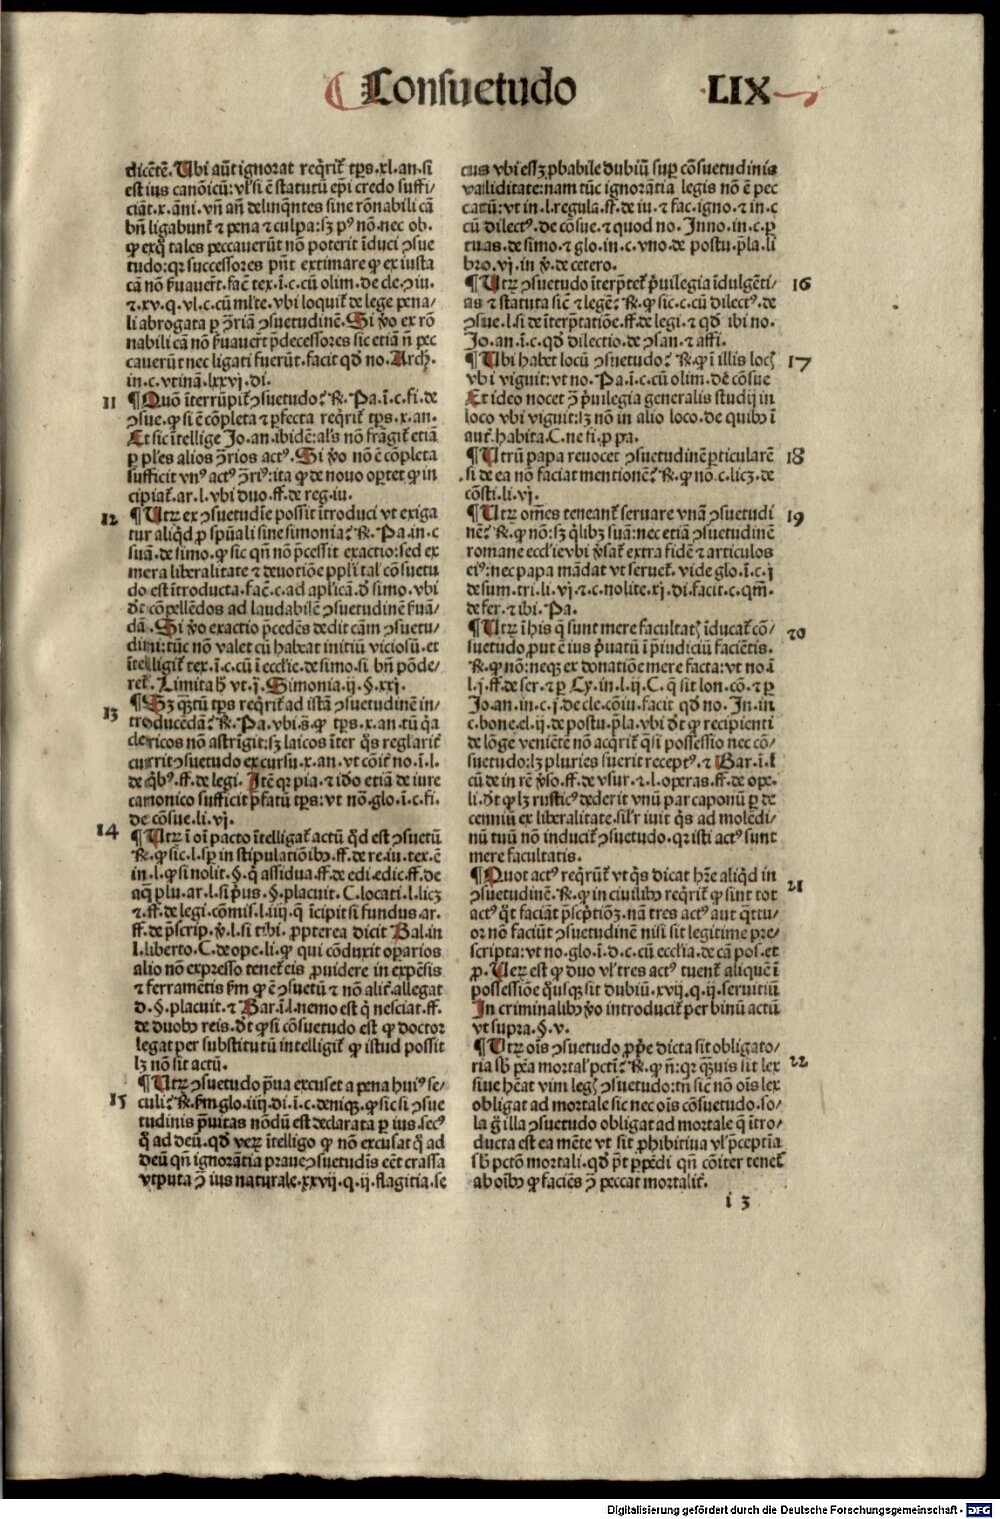 Consuetudo LIX
dicētē. Ubi aūt ignorat reqrit tps. xl. an. si
est ius canōicū: vl si ē statutū epi credo suffi/
ciāt. x. āni. vn añ delinqntes sine rōnabili cā
bñ ligabunt ⁊ pena ⁊ culpa: sꝫ pꝰ nō. nec ob.
ꝙ exq̄ tales peccauerūt nō poterit īduci ꝯsue
tudo: qꝛ successores pñt extimare ꝙ ex iusta
cā nō ẜuauerī. facē tex. ī. c. cū olim. de cle. ꝯiu.
⁊. xv. q. vl. c. cū mlte. vbi loquit de lege pena/
li abrogata ꝑ ꝯ̄riā ꝯsuetudinē. Si v̄o ex rō
nabili cā nō ẜuauerūt ṗdecessores sic etiā ñ pec
cauerūt nec ligati fuerūt. facit qd̄ no. Arch.
in. c. vtinā. lxxvj. di.
11 ¶ Quō īterrūpit ꝯsuetudo? R. Pa. ī. c. fi. de
ꝯsue. ꝙ si ē cōpleta ⁊ ꝑfecta reqrit tps. x. an.
Et sic ītellige Jo. an. ibidē: als nō frāgit etiā
ꝑ ples alios ꝯ̄rios actꝰ. Si v̄o nō ē cōpleta
sufficit vnꝰ actꝰ ꝯ̄riꝰ: ita ꝙ de nouo oꝑtet ꝙ in
cipiat. ar. l. vbi duo. ff. de reg. iu.
12 ¶ Utꝝ ex ꝯsuetudīe possit ītroduci vt exiga
tur aliqd̄ ꝓ spūali sine simonia? R. Pa. in. c
suā. de simo. ꝙ sic qn̄ nō ṗcessit exactio: sed ex
mera liberalitate ⁊ deuotiōe ppli tal cōsuetu
do est ītroducta. facē. c. ad aplicā. d̄ simo. vbi
dt̄ cōpellēdos ad laudabilē ꝯsuetudinē ẜuā/
dā. Si v̄o exactio ṗcedēs dedit cām ꝯsuetu/
dini: tūc nō valet cū habeat initiū viciosū. et
ītelligit tex. ī. c. cū ī ecclie. de simo. si bn̄ pōde/
ret. Limita ħ vt. j. Simonia. ij. §. xxj.
13 ¶ Sꝫ qꝫtū tps reqrit ad istā ꝯsuetudinē in/
troducēdā? R. Pa. vbi. s̄. ꝙ tps. x. an. tū q̄a
clericos nō astrigit: sꝫ laicos īter q̄s reglarit
currit ꝯsuetudo ex cursu. x. an. vt cōit no. ī. l.
de q̄bꝰ. ff. de legi. Itē qꝛ pia. ⁊ iō etiā de iure
canonico sufficit ṗfatū tps: vt nō. glo. ī. c. fi.
de cōsue. li. vj.
14 ¶ Utꝝ ī oī pacto ītelligat actū qd̄ est ꝯsuetū
R. ꝙ sic. l. sꝑ in stipulatiōibꝫ. ff. de re. iu. tex. ē
in. l. ꝙ si nolit. §. q̄ assidua. ff. de edi. edic. ff. de
aq̄ plu. ar. l. si ṗus. §. placuit. C. locati. l. licꝫ
⁊. ff. de legi. cōmis. l. iiij. q̄ īcipit si fundus. ar.
ff. de ṗscrip. v̄. l. si tibi. ꝓpterea dicit Bal. in
l. liberto. C. de ope. li. ꝙ qui cōduxit oꝑarios
alio nō expresso tenet eis ꝓuidere in expēsis
⁊ ferramētis ẜm ꝙ ē ꝯsuetū ⁊ nō alit. allegat
d. §. placuit. ⁊ Bar. ī. l. nemo est q̄ nesciat. ff.
de duobꝫ reis. dt̄ ꝙ si cōsuetudo est ꝙ doctor
legat per substitutū intelligit ꝙ istud possit
lꝫ nō sit actū.
15 ¶ Utꝝ ꝯsuetudo ṗua excuset a pena huiꝰ se/
culi? R. ẜm glo. iiij. di. ī. c. deniqꝫ. ꝙ sic si ꝯsue
tudinis ṗuitas nōdū est declarata ꝑ ius. secꝰ
q̄ ad deū. qd̄ veꝝ ītelligo ꝙ nō excusat q̄ ad
deū qn̄ ignorātia praue ꝯsuetudīs eēt crassa
vtputa ꝯ̄ ius naturale. xxvij. q. ij. flagitia. se
cus vbi essꝫ ꝓbabile dubiū suꝑ cōsuetudinis
validitate: nam tūc ignorātia legis nō ē pec
catū: vt in. l. regula. ff. de iu. ⁊ fac. igno. ⁊ in. c
cū dilectꝰ. de cōsue. ⁊ quod no. Inno. in. c. ꝑ
tuas. de simo. ⁊ glo. in. c. vno. de postu. pla. li
bro. vj. in v̄. de cetero.
16 ¶ Utꝝ ꝯsuetudo īterpret ṗuilegia īdulgēti/
as ⁊ statuta sic ⁊ legē? R. ꝙ sic. c. cū dilectꝰ. de
ꝯsue. l. si de īterpretatiōe. ff. de legi. ⁊ qd̄ ibi no.
Jo. an. ī. c. qd̄ dilectio. de ꝯsan. ⁊ affi.
17 ¶ Ubi habet locū ꝯsuetudo? R. ꝙ ī illis locꝭ
vbi viguit: vt no. Pa. ī. c. cū olim. de cōsue
Et ideo nocet ꝯ̄ ṗuilegia generalis studij in
loco vbi viguit: lꝫ nō in alio loco. de quibꝫ ī
aut. habita. C. ne fi. ꝓ pa.
18 ¶ Utrū papa reuocet ꝯsuetudinē ꝑticularē
si de ea nō faciat mentionē? R. ꝙ nō. c. licꝫ. de
cōsti. li. vj.
19 ¶ Utꝝ oms teneant seruare vnā ꝯsuetudi
nē? R. ꝙ nō: sꝫ q̄libꝫ suā: nec etiā ꝯsuetudinē
romane ecclie vbi v̄sat extra fidē ⁊ articulos
eiꝰ: nec papa mādat vt seruet. vide glo. ī. c. j
de sum. tri. li. vj. ⁊. c. nolite. xj. di. facit. c. qm̄.
de fer. ⁊ ibi. Pa.
20 ¶ Utꝝ ī his q̄ sunt mere facultatꝭ īducat cō/
suetudo ꝓut ē ius ṗuatū ī ṗiudiciū faciētis.
R. ꝙ nō: neqꝫ ex donatiōe mere facta: vt no. ī
l. j. ff. de ser. ⁊ ꝑ Cy. in. l. ij. C. q̄ sit lon. cō. ⁊ ꝑ
Jo. an. in. c. j. de cle. cōiu. facit qd̄ no. In. in
c. bone. el. ij. de postu. pla. vbi dt̄ ꝙ recipienti
de lōge veniēte nō acq̄rit q̄si possessio nec cō/
suetudo: lꝫ pluries fuerit receptꝰ. ⁊ Bar. ī. l
cū de in rē v̄so. ff. de vsur. ⁊. l. operas. ff. de ope.
li. dt̄ ꝙ lꝫ rusticꝰ dederit vnū par caponū ꝑ de
cenniū ex liberalitate. silr iuit q̄s ad molēdi/
nū tuū nō inducit ꝯsuetudo. qꝛ isti actꝰ sunt
mere facultatis.
21 ¶ Quot actꝰ reqrūt vt q̄s dicat hr̄e aliqd̄ in
ꝯsuetudinē. R. ꝙ in ciuilibꝫ reqrit ꝙ sint tot
actꝰ q̄t faciāt ṗscptiōꝫ. nā tres actꝰ aut q̄ttu/
or nō faciūt ꝯsuetudinē nisi sit legitime pre/
scripta: vt no. glo. ī. d. c. cū ecclia. de cā pos. et
ꝓ. Ueꝝ est ꝙ duo vl tres actꝰ tuent aliquē ī
possessiōe q̄usqꝫ sit dubiū. xvij. q. ij. seruitiū
In criminalibꝫ v̄o introducit per binū actū
vt supra. §. v.
22 ¶ Utꝝ oīs ꝯsuetudo ꝓpe dicta sit obligato/
ria sb̄ pēa mortal pcti? R. ꝙ n̄: qꝛ qꝫuis sit lex
siue hēat vim legꝭ ꝯsuetudo: tn̄ sic nō oīs lex
obligat ad mortale sic nec oīs cōsuetudo. so/
la g̊ illa ꝯsuetudo obligat ad mortale q̄ ītro/
ducta est ea mēte vt sit ꝓhibitiua vl ṗceptīa
sb̄ pctō mortali. qd̄ p̄t ꝑpēdi qn̄ cōiter tenet
ab oībꝫ ꝙ faciēs ꝯ̄ peccat mortalit.
i 3
Digitalisierung gefördert durch die Deutsche Forschungsgemeinschaft - DFG